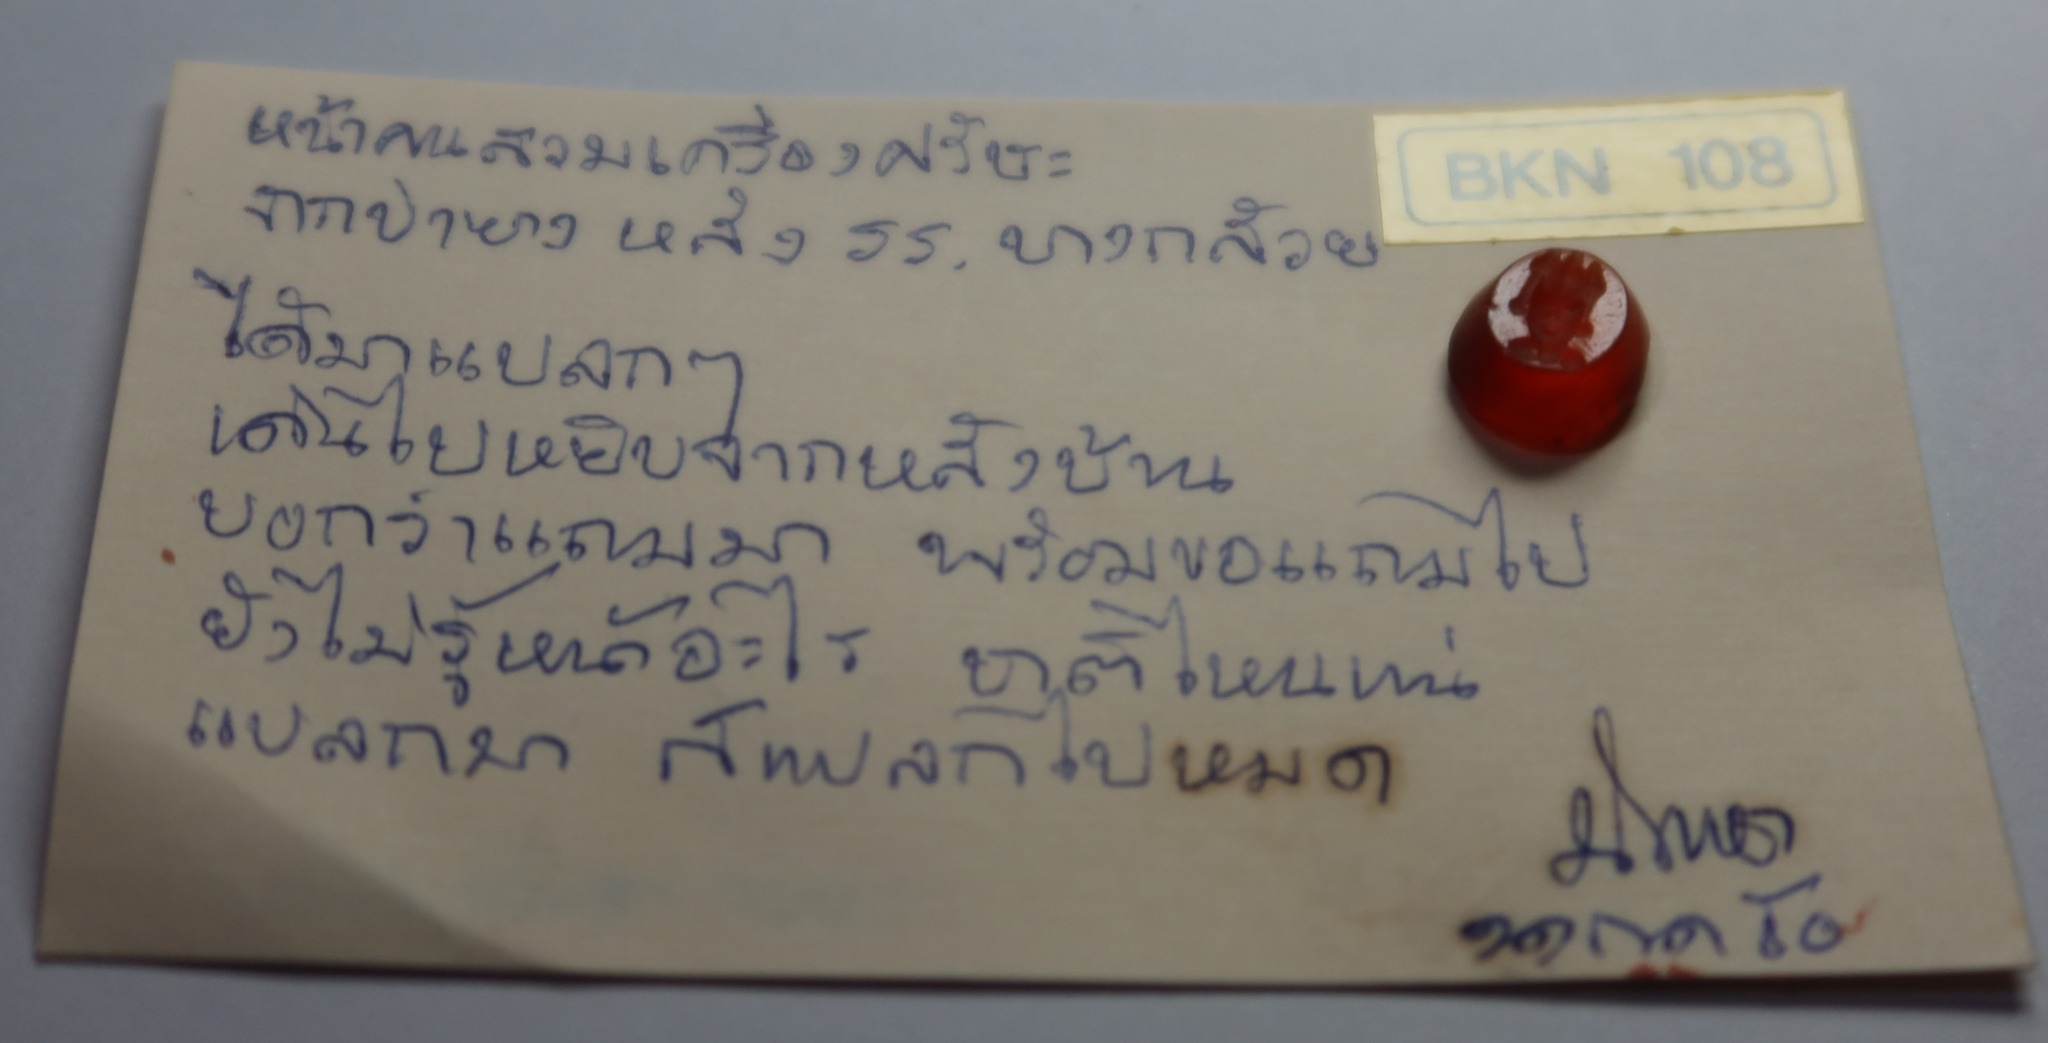 หน้าคนสวมเครื่องศรีษะ
จากป่ายาง หลัง รร. บางกล้วย
BKN 108
ได้มาแปลกๆ
เดินไปหยิบจากหลังบ้าน
บอกว่าแถมมา พร้อมขอแถมไป
ยังไม่รู้หน้าอะไร ชาติไหนแน่
แปลกมา ก็แปลกไปหมด